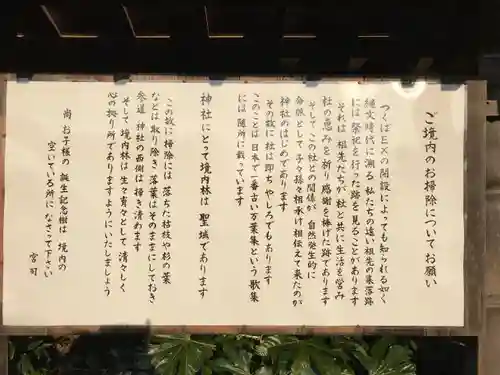 ご境内のお掃除についてお願い
つくばEXの開設によっても知られる如く
縄文時代に遡る 私たちの遠い祖先の集落路
には祭祀を行った跡を見ることがあります
それは 祖先たちが 杜と共に生活を営み
杜の恵みを祈り 感謝を捧げた跡であります
そして この杜との関係が 自然発生的に
命脈として 子々孫々相承け相伝えて来たのが
神社のはじめであります
その故に 杜は即ち やしろでもあります
このことは 日本で一番古い万葉集という 歌集
には 随所に載っています
神社にとって 境内林は 聖域であります
この故に 掃除には 落ちた枯枝や杉の葉
などは 取り除き 落葉はそのままにしておき
参道 神社の西側は 掃き清めます
そして 境内林は 生々育々として 清々しく
心の拠り所でありますようにいたしましょう
尚 お子様の 誕生記念樹は 境内の
空いている所に なさって下さい
宮司